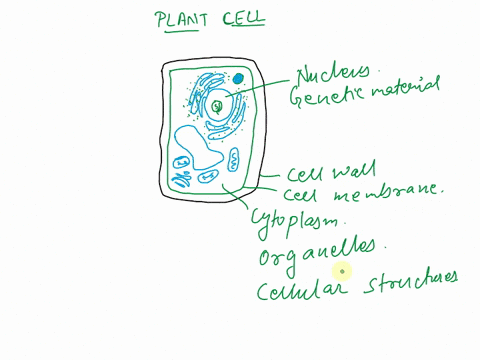 PLANT CELL
Nucleus.
Genetic material
Cell wall
Cell membrane.
Cytoplasm.
Organelles.
Cellular structures